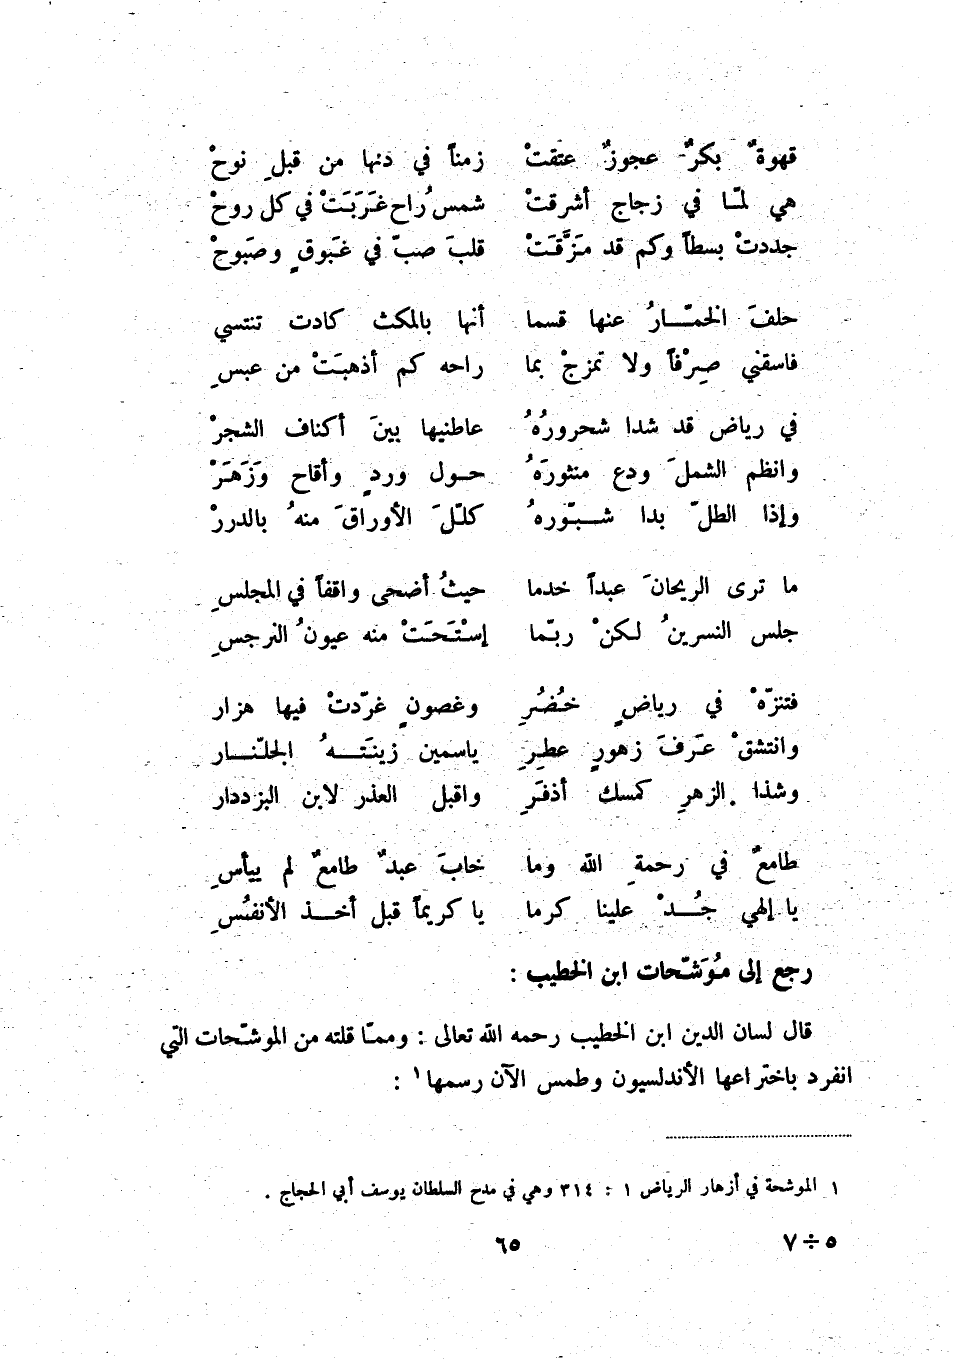 قهوةٌ بكرٌ عجوزٌ عتقتْ زمناً في دنها من قبلِ نوحْ
هي لمّا في زجاج أشرقتْ شمسُ راح غَرَبَتْ في كل روحْ
جددتْ بسطاً وكم قد مَزَّقَتْ قلبَ صبّ في غَبوقٍ وصَبوحْ
حلفَ الخمّارُ عنها قسما أنها بالمكث كادت تنتسي
فاسقني صِرْفاً ولا تمزجْ بما راحه كم أذهبَتْ من عبسِ
في رياض قد شدا شحرورُهُ عاطنيها بينَ أكناف الشجرْ
وانظم الشملَ ودع منثورَهُ حول وردٍ وأقاح وَزَهَرْ
وإذا الطلّ بدا شبّورهُ كلّلَ الأوراقَ منهُ بالدررْ
ما ترى الريحانَ عبداً خدما حيثُ أضحى واقفاً في المجلسِ
جلس النسرينُ لكنْ ربّما إسْتَحَتْ منه عيونُ النرجسِ
فتنزّهْ في رياضٍ خُضُرِ وغصونٍ غرّدتْ فيها هزار
وانتشقْ عَرفَ زهورٍ عطِرِ ياسمين زينَتهُ الجلّنار
وشذا الزهرِ كمسك أذفَرِ واقبل العذر لابن البزددار
طامعٌ في رحمةِ الله وما خابَ عبدٌ طامعٌ لم ييأسِ
يا إلهي جُدْ علينا كرما يا كريماً قبل أخذ الأنفُسِ
رجع إلى مُوَشّحات ابن الخطيب :
قال لسان الدين ابن الخطيب رحمه الله تعالى : وممّا قلته من الموشّحات التي
انفرد باختراعها الأندلسيون وطمس الآن رسمها١ :
١ الموشحة في أزهار الرياض ١ : ٣١٤ وهي في مدح السلطان يوسف أبي الحجاج .
٥ ÷ ٧ ٦٥